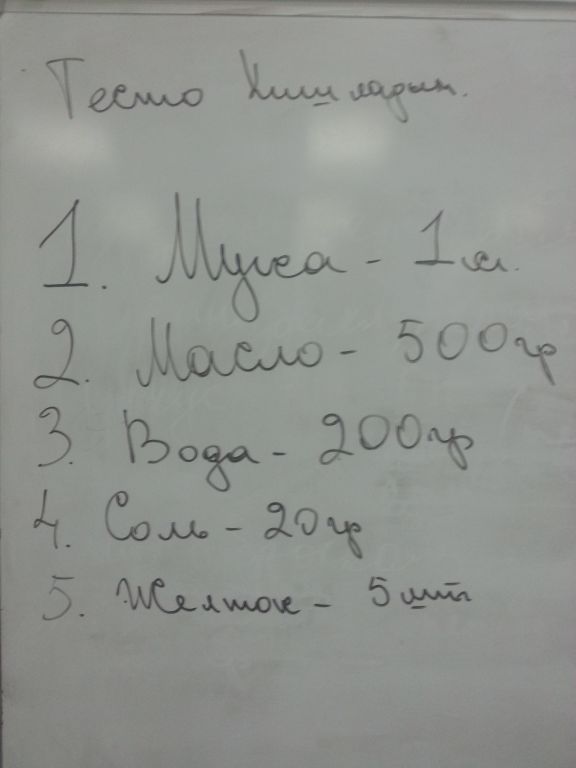 Тесто
1. Мука - 1 кг.
2. Масло - 500 гр
3. Вода - 200 гр
4. Соль - 20 гр
5. Желток - 5 шт